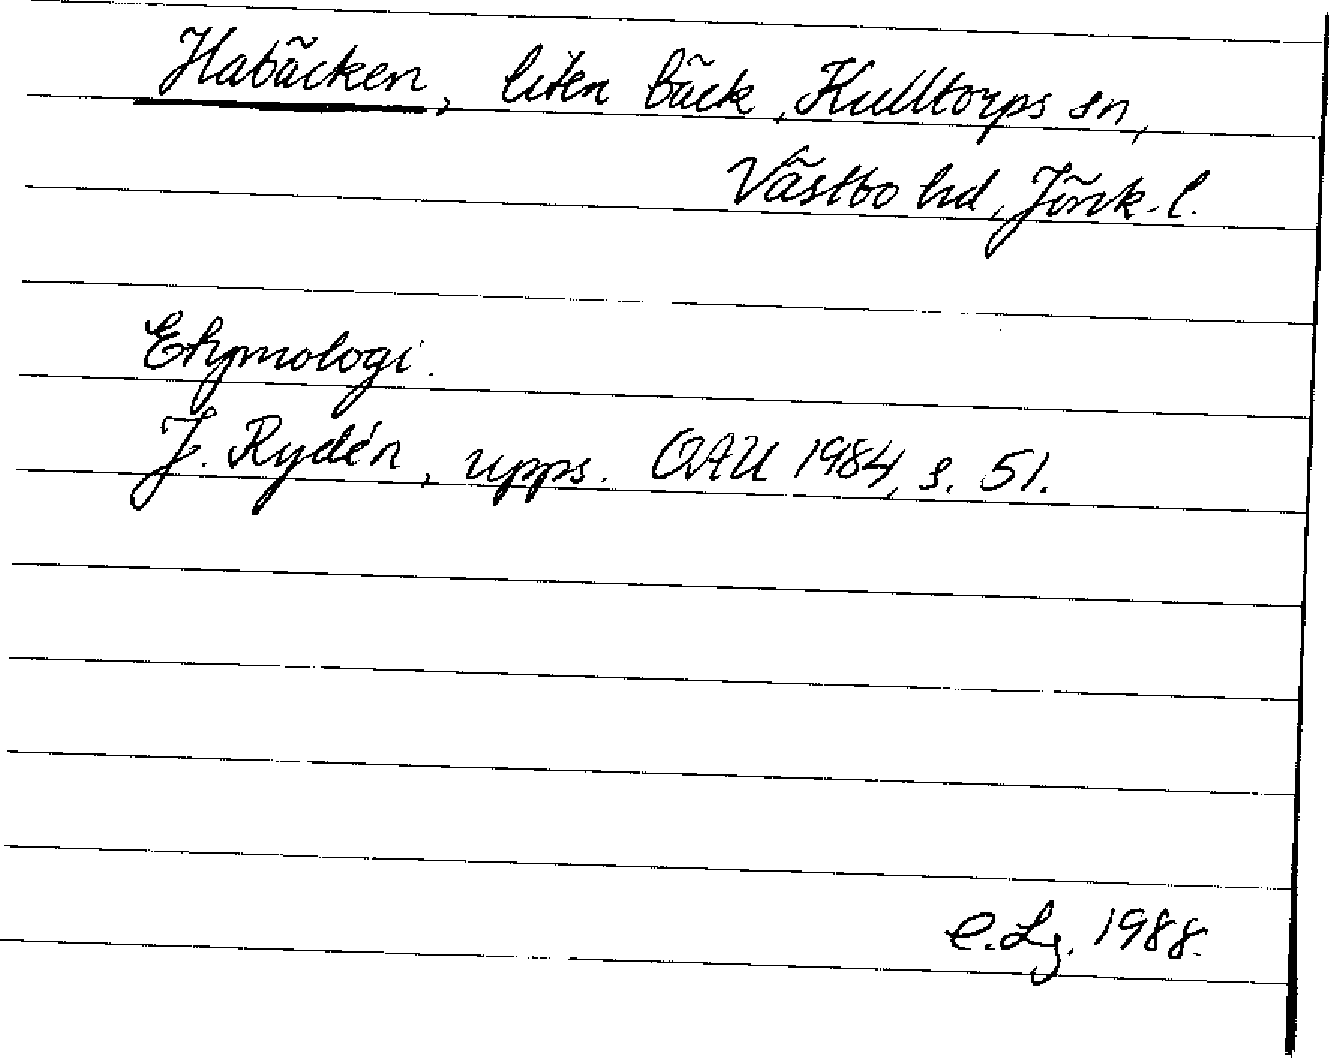 Habäcken, liten bäck, Kulltorps sn,
Västbo hd, Jönk. l.
Etymologi.
J. Rydén, upps. OAU 1984, s. 51.
C. Lg. 1988.